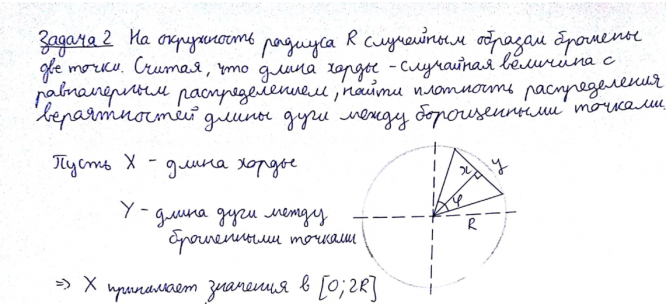 Задача 2 На окружность радиуса R случайным образом брошены
две точки. Считая, что длина хорды - случайная величина с
равномерным распределением, найти плотность распределения
вероятностей длины дуги между борошенными точками.
Пусть X - длина хорды
x y
φ
Y - длина дуги между
R
брошенными точками
⇒ X принимает значения в [0; 2R]